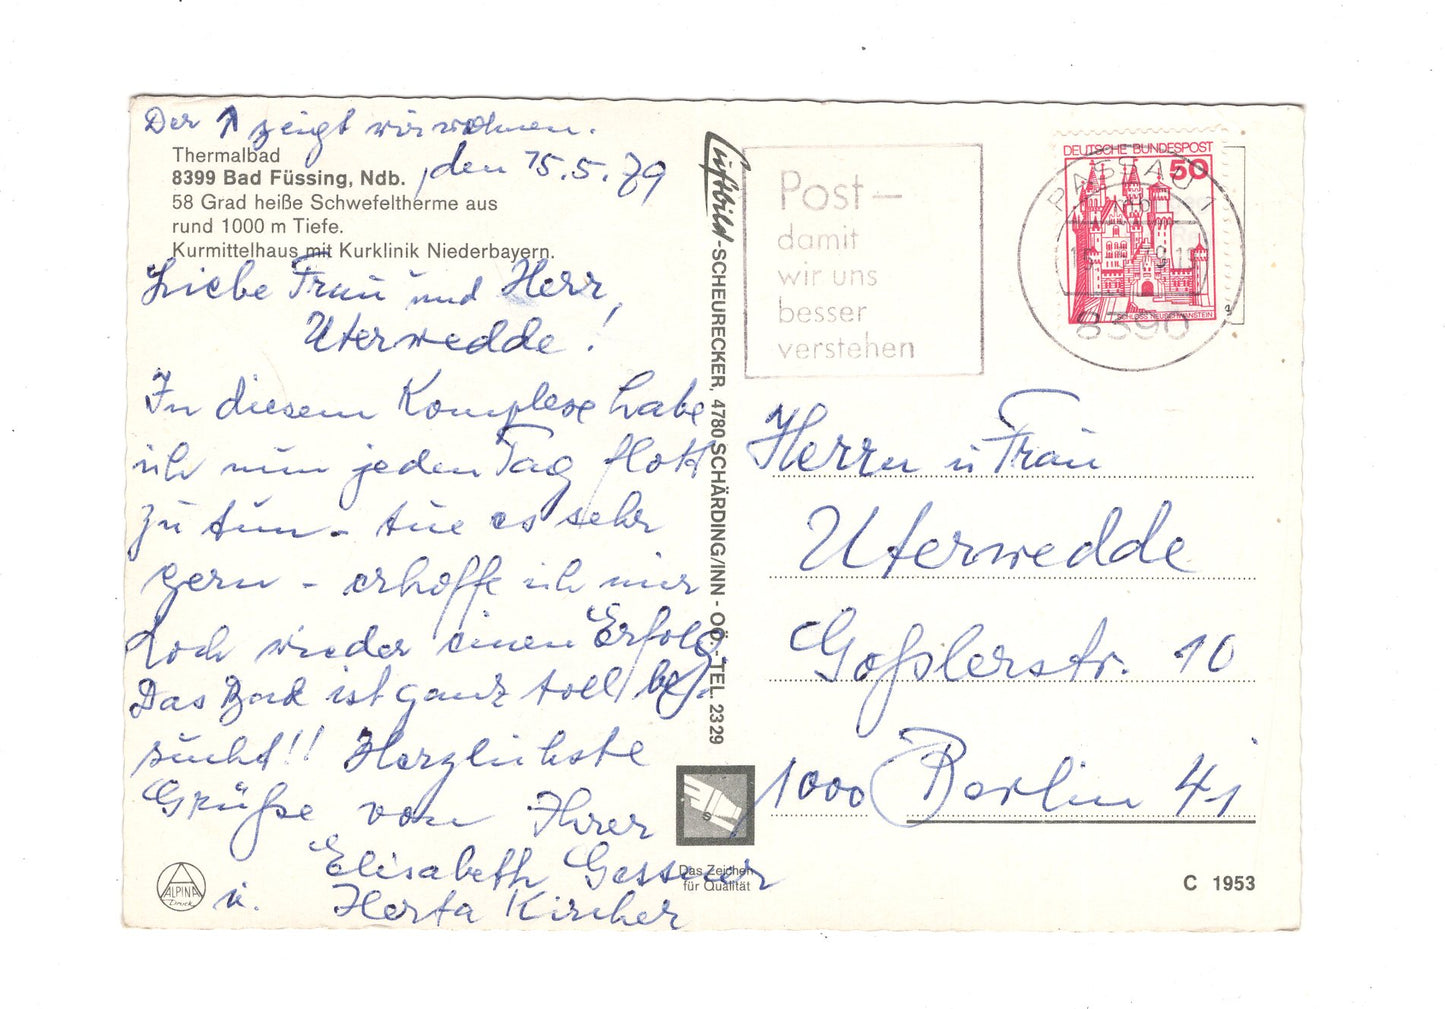 Der ↑ zeigt wir wohnen.
Thermalbad
den 15.5.79
8399 Bad Füssing, Ndb.
58 Grad heiße Schwefeltherme aus
rund 1000 m Tiefe.
Kurmittelhaus mit Kurklinik Niederbayern.
Liebe Frau und Herr,
Uterwedde!
In diesem Komplexe habe
ich nun jeden Tag flott
zu tun - tue es sehr
gern - erhoffe ich mir
doch wieder einen Erfolg.
Das Bad ist ganz toll be-
sucht!! Herzlichste
Grüße von Ihrer
Elisabeth Gessner
u. Herta Kircher
ALPINA
Druck
Luftbild-SCHEURECKER, 4780 SCHÄRDING/INN - OÖ. - TEL. 2329
Das Zeichen
für Qualität
Post –
damit
wir uns
besser
verstehen
DEUTSCHE BUNDESPOST
50
SCHLOSS NEUSCHWANSTEIN
PASSAU 1
mb
8390
Herrn u Frau
Uterwedde
Goßlerstr. 10
1000 Berlin 41
C 1953